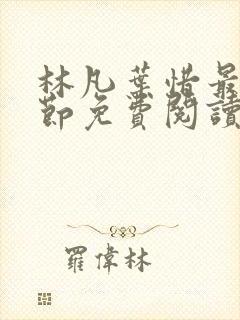 林凡葉惜最
節免費閱讀
羅偉林